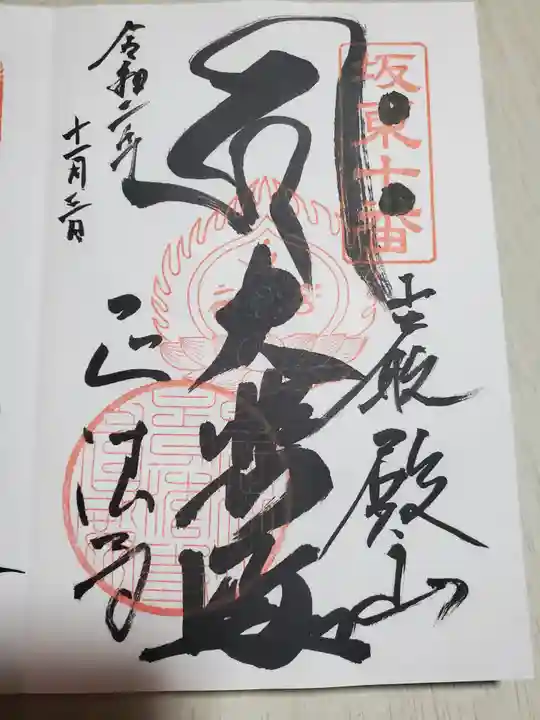 坂東十番
巌殿山
大悲殿
正法寺
令和二年
十一月三日